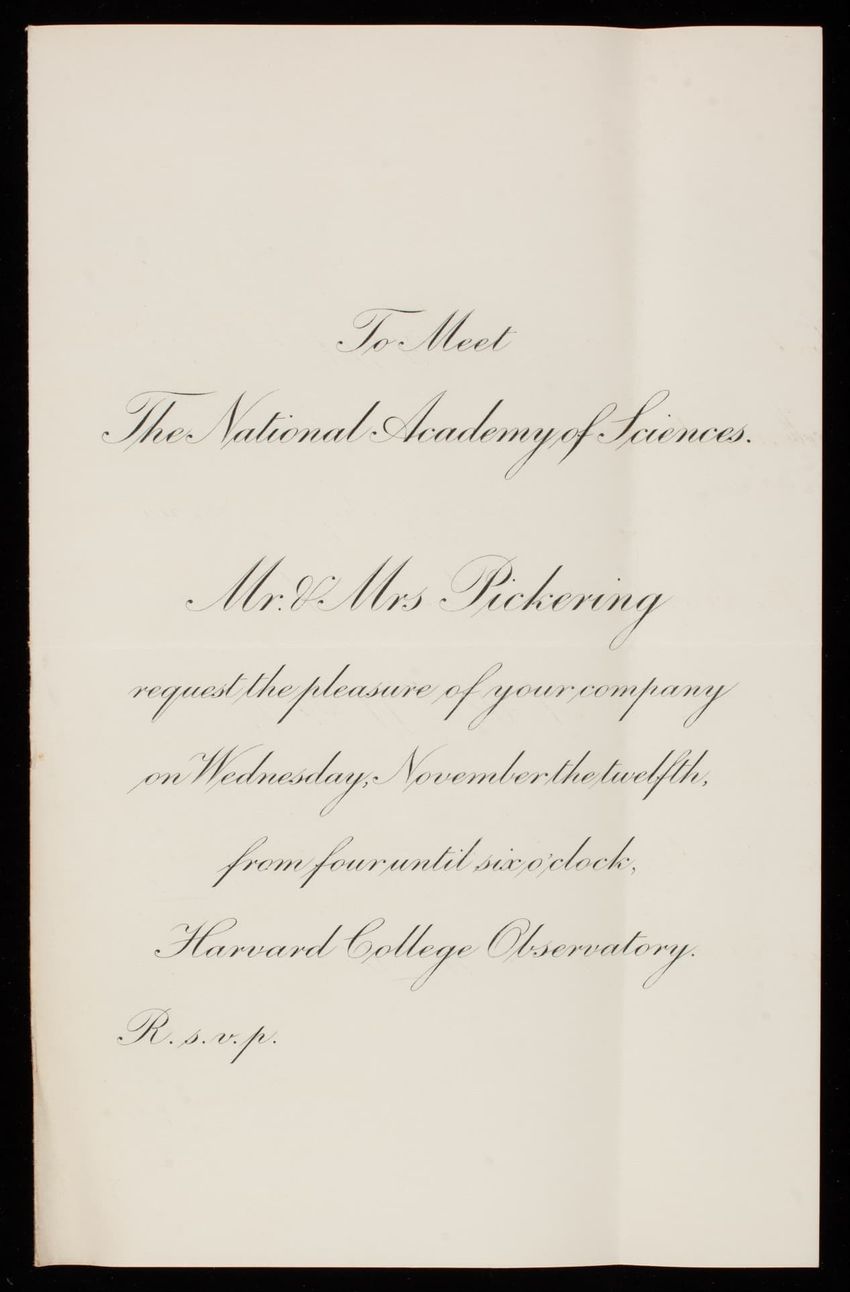 To Meet
The National Academy of Sciences.
Mr. & Mrs Pickering
request the pleasure of your company
on Wednesday, November the twelfth,
from four until six o'clock,
Harvard College Observatory.
R. s. v. p.